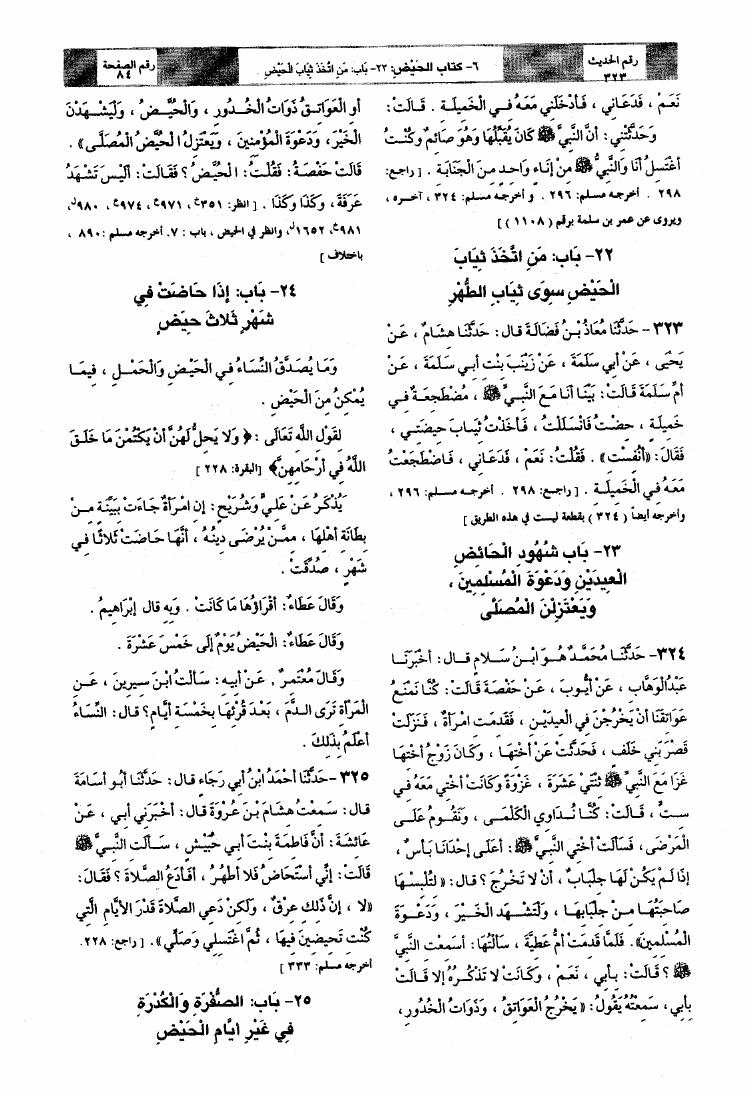 رقم الحديث
٣٢٣
٦- كتاب الحَيْض: ٢٢- بَاب: مَنِ اتَّخَذَ ثِيَابَ الحَيْضِ
رقم الصفحة
٨٤
نَعَمْ ، فَدَعَانِي ، فَأدْخَلَنِي مَعَهُ فِي الْخَمِيلَةِ . قَالَتْ:
وَحَدَّثَتْنِي: أنَّ النَّبِيَّ ﷺ كَانَ يُقَبِّلُهَا وَهُوَ صَائِمٌ وَكُنْتُ
أغْتَسِلُ أنَا وَالنَّبِيُّ ﷺ مِنْ إنَاءٍ وَاحِدٍ مِنَ الْجَنَابَةِ . [راجع:
٢٩٨ . أخرجه مسلم: ٢٩٦ . و أخرجه مسلم: ٣٢٤ ، آخره ،
ويروى عن عمر بن سلمة برقم (١١٠٨)]
٢٢- بَاب: مَنِ اتَّخَذَ ثِيَابَ
الْحَيْضِ سِوَى ثِيَابِ الطُّهْرِ
٣٢٣- حَدَّثَنَا مُعَاذُ بْنُ فَضَالَةَ قال: حَدَّثَنَا هِشَام ، عَنْ
يَحْيَى ، عَنْ أبِي سَلَمَةَ ، عَنْ زَيْنَبَ بِنْتِ أبِي سَلَمَةَ ، عَنْ
أمِّ سَلَمَةَ قَالَتْ: بَيْنَا أنَا مَعَ النَّبِيِّ ﷺ ، مُضْطَجِعَةٌ فِي
خَمِيلَةٍ ، حِضْتُ فَانْسَلَلْتُ ، فَأخَذْتُ ثِيَابَ حِيضَتِي ،
فَقَالَ: «أنُفِسْتِ» . فَقُلْتُ: نَعَمْ ، فَدَعَانِي ، فَاضْطَجَعْتُ
مَعَهُ فِي الْخَمِيلَةِ . [راجع: ٢٩٨ . أخرجه مسلم: ٢٩٦ ،
وأخرجه أيضاً (٣٢٤) بقطعة ليست في هذه الطريق]
٢٣- بَاب شُهُودِ الْحَائِضِ
الْعِيدَيْنِ وَدَعْوَةَ الْمُسْلِمِينَ ،
وَيَعْتَزِلْنَ الْمُصَلَّى
٣٢٤- حَدَّثَنَا مُحَمَّدٌ هُوَ ابْنُ سَلامٍ قال: أخْبَرَنَا
عَبْدُالْوَهَّابِ ، عَنْ أيُّوبَ ، عَنْ حَفْصَةَ قَالَتْ: كُنَّا نَمْنَعُ
عَوَاتِقَنَا أنْ يَخْرُجْنَ فِي الْعِيدَيْنِ ، فَقَدِمَتِ امْرَأةٌ ، فَنَزَلَتْ
قَصْرَ بَنِي خَلَفٍ ، فَحَدَّثَتْ عَنْ أخْتِهَا ، وَكَانَ زَوْجُ أخْتِهَا
غَزَا مَعَ النَّبِيِّ ﷺ ثِنْتَيْ عَشَرَةَ ، غَزْوَةً وَكَانَتْ أخْتِي مَعَهُ فِي
سِتٍّ ، قَالَتْ: كُنَّا نُدَاوِي الْكَلْمَى ، وَنَقُومُ عَلَى
الْمَرْضَى ، فَسَألَتْ أخْتِي النَّبِيَّ ﷺ: أعَلَى إحْدَانَا بَأْسٌ ،
إذَا لَمْ يَكُنْ لَهَا جِلْبَابٌ ، أنْ لا تَخْرُجَ ؟ قال: «لِتُلْبِسْهَا
صَاحِبَتُهَا مِنْ جِلْبَابِهَا ، وَلْتَشْهَدِ الْخَيْرَ ، وَدَعْوَةَ
الْمُسْلِمِينَ» . فَلَمَّا قَدِمَتْ أمُّ عَطِيَّةَ ، سَألْتُهَا: أسَمِعْتِ النَّبِيَّ
ﷺ ؟ قَالَتْ: بِأبِي ، نَعَمْ ، وَكَانَتْ لا تَذْكُرُهُ إلا قَالَتْ
بِأبِي، سَمِعْتُهُ يَقُولُ: «يَخْرُجُ الْعَوَاتِقُ ، وَذَوَاتُ الْخُدُورِ ،
أوِ الْعَوَاتِقُ ذَوَاتُ الْخُدُورِ ، وَالْحُيَّضُ ، وَلْيَشْهَدْنَ
الْخَيْرَ، وَدَعْوَةَ الْمُؤْمِنِينَ ، وَيَعْتَزِلُ الْحُيَّضُ الْمُصَلَّى» .
قَالَتْ حَفْصَةُ: فَقُلْتُ: الْحُيَّضُ ؟ فَقَالَتْ: ألَيْسَ تَشْهَدُ
عَرَفَةَ ، وَكَذَا وَكَذَا . [انظر: ٣٥١ع، ٩٧١ع، ٩٧٤ع، ٩٨٠ل،
٩٨١ع، ١٦٥٢ل، وانظر في الحيض ، باب : ٧. أخرجه مسلم: ٨٩٠ ،
باختلاف]
٢٤- بَاب: إذَا حَاضَتْ فِي
شَهْرٍ ثَلاثَ حِيَضٍ
وَمَا يُصَدَّقُ النِّسَاءُ فِي الْحَيْضِ وَالْحَمْلِ ، فِيمَا
يُمْكِنُ مِنَ الْحَيْضِ .
لِقَوْلِ اللَّهِ تَعَالَى : ﴿وَلا يَحِلُّ لَهُنَّ أنْ يَكْتُمْنَ مَا خَلَقَ
اللَّهُ فِي أرْحَامِهِنَّ﴾ [البقرة: ٢٢٨]
يُذْكَرُ عَنْ عَلِيٍّ وَشُرَيْحٍ: إن امْرَأةٌ جَاءَتْ بِبَيِّنَةٍ مِنْ
بِطَانَةِ أهْلِهَا ، مِمَّنْ يُرْضَى دِينُهُ ، أنَّهَا حَاضَتْ ثَلاثًا فِي
شَهْرٍ ، صُدِّقَتْ .
وَقَالَ عَطَاءٌ: أقْرَاؤُهَا مَا كَانَتْ . وَبِهِ قال إبْرَاهِيمُ .
وَقَالَ عَطَاءٌ: الْحَيْضُ يَوْمٌ إلَى خَمْسَ عَشْرَةَ .
وَقَالَ مُعْتَمِرٌ , عَنْ أبِيهِ: سَألْتُ ابْنَ سِيرِينَ ، عَنِ
الْمَرْأةِ تَرَى الدَّمَ ، بَعْدَ قُرْئِهَا بِخَمْسَةِ أيَّامٍ؟ قال: النِّسَاءُ
أعْلَمُ بِذَلِكَ .
٣٢٥- حَدَّثَنَا أحْمَدُ ابْنُ أبِي رَجَاءٍ قال: حَدَّثَنَا أبُو أسَامَةَ
قال: سَمِعْتُ هِشَامَ بْنَ عُرْوَةَ قال: أخْبَرَنِي أبِي ، عَنْ
عَائِشَةَ: أنَّ فَاطِمَةَ بِنْتَ أبِي حُبَيْشٍ ، سَألَتِ النَّبِيَّ ﷺ
قَالَتْ: إنِّي أسْتَحَاضُ فَلا أطْهُرُ ، أفَأدَعُ الصَّلاةَ ؟ فَقَالَ:
«لا ، إنَّ ذَلِكِ عِرْقٌ ، وَلَكِنْ دَعِي الصَّلاةَ قَدْرَ الأيَّامِ الَّتِي
كُنْتِ تَحِيضِينَ فِيهَا ، ثُمَّ اغْتَسِلِي وَصَلِّي» . [راجع: ٢٢٨.
أخرجه مسلم: ٣٣٣]
٢٥- بَاب: الصُّفْرَةِ وَالْكُدْرَةِ
فِي غَيْرِ أيَّامِ الْحَيْضِ